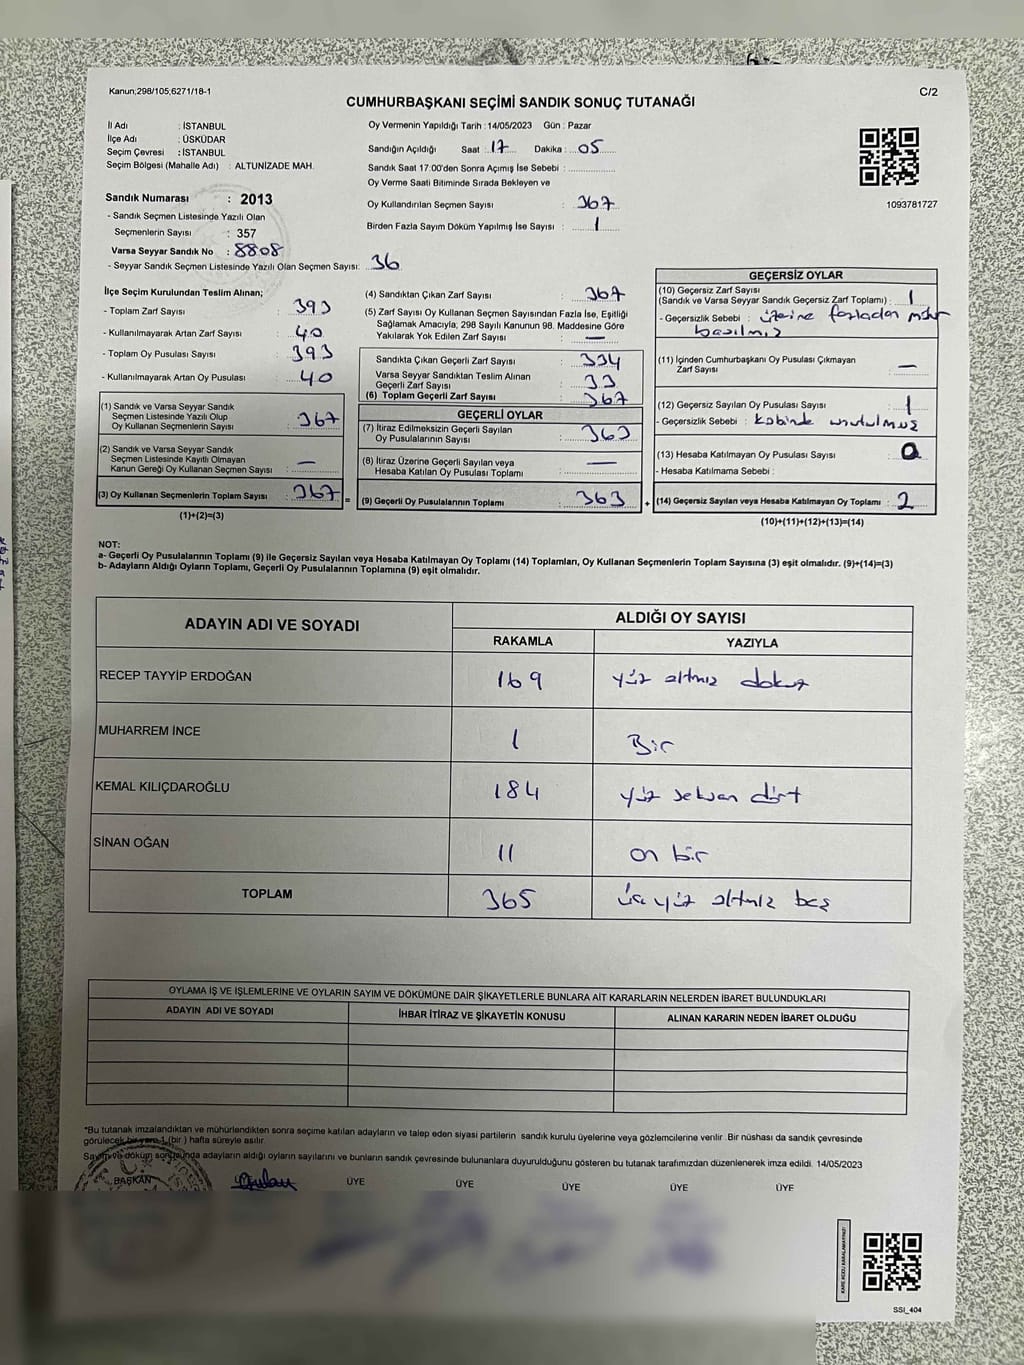 Kanun;298/105;6271/18-1
C/2
CUMHURBAŞKANI SEÇİMİ SANDIK SONUÇ TUTANAĞI
İl Adı : İSTANBUL
İlçe Adı : ÜSKÜDAR
Seçim Çevresi : İSTANBUL
Seçim Bölgesi (Mahalle Adı) : ALTUNİZADE MAH.
Oy Vermenin Yapıldığı Tarih : 14/05/2023 Gün : Pazar
Sandığın Açıldığı Saat : 17 Dakika : 05
Sandık Saat 17:00'den Sonra Açımış İse Sebebi :
Oy Verme Saati Bitiminde Sırada Bekleyen ve
Oy Kullandırılan Seçmen Sayısı : 367
Birden Fazla Sayım Döküm Yapılmış İse Sayısı : 1
1093781727
Sandık Numarası : 2013
- Sandık Seçmen Listesinde Yazılı Olan
Seçmenlerin Sayısı : 357
Varsa Seyyar Sandık No : 8808
- Seyyar Sandık Seçmen Listesinde Yazılı Olan Seçmen Sayısı: 36
İlçe Seçim Kurulundan Teslim Alınan;
- Toplam Zarf Sayısı : 393
- Kullanılmayarak Artan Zarf Sayısı : 40
- Toplam Oy Pusulası Sayısı : 393
- Kullanılmayarak Artan Oy Pusulası : 40
(1) Sandık ve Varsa Seyyar Sandık
Seçmen Listesinde Yazılı Olup
Oy Kullanan Seçmenlerin Sayısı : 367
(2) Sandık ve Varsa Seyyar Sandık
Seçmen Listesinde Kayıtlı Olmayan
Kanun Gereği Oy Kullanan Seçmen Sayısı : —
(3) Oy Kullanan Seçmenlerin Toplam Sayısı : 367 =
(1)+(2)=(3)
(4) Sandıktan Çıkan Zarf Sayısı : 367
(5) Zarf Sayısı Oy Kullanan Seçmen Sayısından Fazla İse, Eşitliği
Sağlamak Amacıyla; 298 Sayılı Kanunun 98. Maddesine Göre
Yakılarak Yok Edilen Zarf Sayısı : —
Sandıkta Çıkan Geçerli Zarf Sayısı : 334
Varsa Seyyar Sandıktan Teslim Alınan
Geçerli Zarf Sayısı : 33
(6) Toplam Geçerli Zarf Sayısı : 367
GEÇERLİ OYLAR
(7) İtiraz Edilmeksizin Geçerli Sayılan
Oy Pusulalarının Sayısı : 363
(8) İtiraz Üzerine Geçerli Sayılan veya
Hesaba Katılan Oy Pusulası Toplamı : —
(9) Geçerli Oy Pusulalarının Toplamı : 363 +
GEÇERSİZ OYLAR
(10) Geçersiz Zarf Sayısı
(Sandık ve Varsa Seyyar Sandık Geçersiz Zarf Toplamı) : 1
- Geçersizlik Sebebi : üzerine fazladan mühür
basılmış
(11) İçinden Cumhurbaşkanı Oy Pusulası Çıkmayan
Zarf Sayısı : —
(12) Geçersiz Sayılan Oy Pusulası Sayısı : 1
- Geçersizlik Sebebi : kabinde unutulmuş
(13) Hesaba Katılmayan Oy Pusulası Sayısı : 0
- Hesaba Katılmama Sebebi :
(14) Geçersiz Sayılan veya Hesaba Katılmayan Oy Toplamı : 2
(10)+(11)+(12)+(13)=(14)
NOT:
a- Geçerli Oy Pusulalarının Toplamı (9) ile Geçersiz Sayılan veya Hesaba Katılmayan Oy Toplamı (14) Toplamları, Oy Kullanan Seçmenlerin Toplam Sayısına (3) eşit olmalıdır. (9)+(14)=(3)
b- Adayların Aldığı Oyların Toplamı, Geçerli Oy Pusulalarının Toplamına (9) eşit olmalıdır.
ADAYIN ADI VE SOYADI
ALDIĞI OY SAYISI
RAKAMLA YAZIYLA
RECEP TAYYİP ERDOĞAN 169 yüz altmış dokuz
MUHARREM İNCE 1 Bir
KEMAL KILIÇDAROĞLU 184 yüz seksen dört
SİNAN OĞAN 11 on bir
TOPLAM 365 üç yüz altmış beş
OYLAMA İŞ VE İŞLEMLERİNE VE OYLARIN SAYIM VE DÖKÜMÜNE DAİR ŞİKAYETLERLE BUNLARA AİT KARARLARIN NELERDEN İBARET BULUNDUKLARI
ADAYIN ADI VE SOYADI İHBAR İTİRAZ VE ŞİKAYETİN KONUSU ALINAN KARARIN NEDEN İBARET OLDUĞU
*Bu tutanak imzalandıktan ve mühürlendikten sonra seçime katılan adayların ve talep eden siyasi partilerin sandık kurulu üyelerine veya gözlemcilerine verilir. Bir nüshası da sandık çevresinde
görülecek bir yere 1 (bir) hafta süreyle asılır.
Sayım ve döküm sonucunda adayların aldığı oyların sayılarını ve bunların sandık çevresinde bulunanlara duyurulduğunu gösteren bu tutanak tarafımızdan düzenlenerek imza edildi. 14/05/2023
BAŞKAN ÜYE ÜYE ÜYE ÜYE ÜYE
KARE KODU KARALAMAYINIZ!
SSI_404